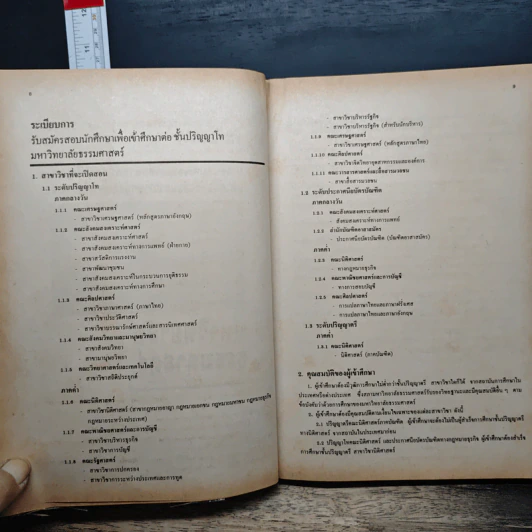 ระเบียบการ
รับสมัครสอบนักศึกษาเพื่อเข้าศึกษาต่อ ชั้นปริญญาโท
มหาวิทยาลัยธรรมศาสตร์
1. สาขาวิชาที่จะเปิดสอน
1.1 ระดับปริญญาโท
ภาคกลางวัน
1.1.1 คณะเศรษฐศาสตร์
- สาขาวิชาเศรษฐศาสตร์ (หลักสูตรภาษาอังกฤษ)
1.1.2 คณะสังคมสงเคราะห์ศาสตร์
- สาขาสังคมสงเคราะห์ศาสตร์
- สาขาสังคมสงเคราะห์ทางการแพทย์ (ฝ่ายกาย)
- สาขาสวัสดิการแรงงาน
- สาขาพัฒนาชุมชน
- สาขาสังคมสงเคราะห์ในกระบวนการยุติธรรม
- สาขาสังคมสงเคราะห์ทางการศึกษา
1.1.3 คณะศิลปศาสตร์
- สาขาวิชาภาษาศาสตร์ (ภาษาไทย)
- สาขาวิชาประวัติศาสตร์
- สาขาวิชาบรรณารักษ์ศาสตร์และสารนิเทศศาสตร์
1.1.4 คณะสังคมวิทยาและมานุษยวิทยา
- สาขาสังคมวิทยา
- สาขามานุษยวิทยา
1.1.5 คณะวิทยาศาสตร์และเทคโนโลยี
- สาขาวิชาสถิติประยุกต์
ภาคค่ำ
1.1.6 คณะนิติศาสตร์
- สาขาวิชานิติศาสตร์ (สาขากฎหมายอาญา กฎหมายเอกชน กฎหมายมหาชน กฎหมายธุรกิจ
กฎหมายระหว่างประเทศ)
1.1.7 คณะพาณิชยศาสตร์และการบัญชี
- สาขาวิชาบริหารธุรกิจ
- สาขาวิชาการบัญชี
1.1.8 คณะรัฐศาสตร์
- สาขาวิชาการปกครอง
- สาขาวิชาการระหว่างประเทศและการทูต
- สาขาวิชาบริหารรัฐกิจ
- สาขาวิชาบริหารรัฐกิจ (สำหรับนักบริหาร)
1.1.9 คณะเศรษฐศาสตร์
- สาขาวิชาเศรษฐศาสตร์ (หลักสูตรภาษาไทย)
1.1.10 คณะศิลปศาสตร์
- สาขาวิชาจิตวิทยาอุตสาหกรรมและองค์การ
1.1.11 คณะวารสารศาสตร์และสื่อสารมวลชน
- สาขาสื่อสารมวลชน
1.2 ระดับประกาศนียบัตรบัณฑิต
ภาคกลางวัน
1.2.1 คณะสังคมสงเคราะห์ศาสตร์
- สังคมสงเคราะห์ทางการแพทย์
1.2.2 สำนักบัณฑิตอาสาสมัคร
- ประกาศนียบัตรบัณฑิต (บัณฑิตอาสาสมัคร)
ภาคค่ำ
1.2.3 คณะนิติศาสตร์
- ทางกฎหมายธุรกิจ
1.2.4 คณะพาณิชยศาสตร์และการบัญชี
- ทางการสอบบัญชี
1.2.5 คณะศิลปศาสตร์
- การแปลภาษาไทยและภาษาฝรั่งเศส
- การแปลภาษาไทยและภาษาอังกฤษ
1.3 ระดับปริญญาตรี
ภาคค่ำ
1.3.1 คณะนิติศาสตร์
นิติศาสตร์ (ภาคบัณฑิต)
2. คุณสมบัติของผู้เข้าศึกษา
1. ผู้เข้าศึกษาต้องมีวุฒิการศึกษาไม่ต่ำกว่าชั้นปริญญาตรี สาขาวิชาใดก็ได้ จากสถาบันการศึกษาใน
ประเทศหรือต่างประเทศ ซึ่งสภามหาวิทยาลัยธรรมศาสตร์รับรองวิทยฐานะและมีคุณสมบัติอื่น ๆ ตาม
ข้อบังคับว่าด้วยการศึกษาของมหาวิทยาลัยธรรมศาสตร์
2. ผู้เข้าศึกษาต้องมีคุณสมบัติตามเงื่อนไขเฉพาะของแต่ละสาขาวิชา ดังนี้
2.1 ปริญญาตรีคณะนิติศาสตร์ภาคบัณฑิต ผู้เข้าศึกษาจะต้องไม่เป็นผู้สำเร็จการศึกษาชั้นปริญญาตรี
ทางนิติศาสตร์ จากสถาบันในประเทศมาก่อน
2.2 ปริญญาโทคณะนิติศาสตร์ และประกาศนียบัตรบัณฑิตทางกฎหมายธุรกิจ ผู้เข้าศึกษาต้องสำเร็จ
การศึกษาชั้นปริญญาตรี สาขาวิชานิติศาสตร์